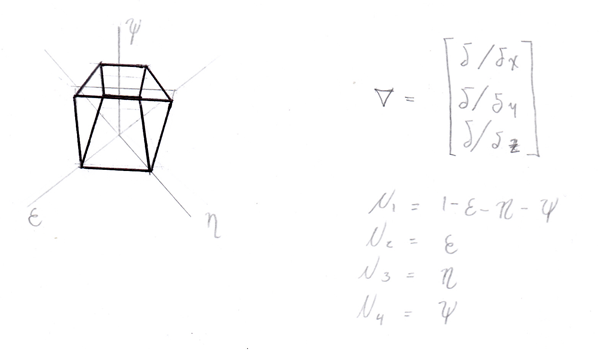 ψ
ε
η
∇ = [δ/δx
δ/δy
δ/δz]
N₁ = 1 - ε - η - ψ
N₂ = ε
N₃ = η
N₄ = ψ